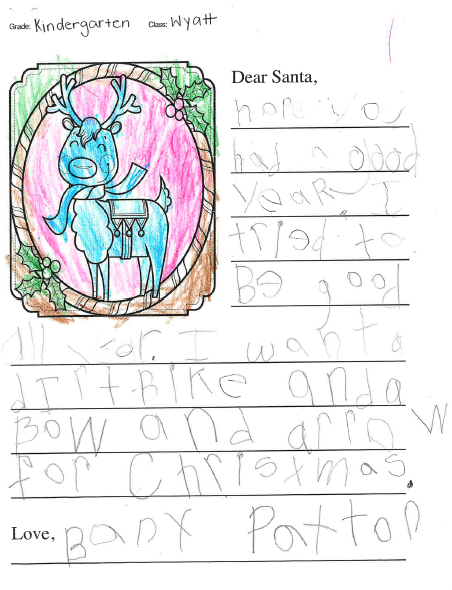 Grade: Kindergarten Class: Wyatt
Dear Santa,
hope you
had a good
year I
tried to
Be good
all year. I want a
dirt Bike and a
Bow and arrow
for Christmas.
Love, Banx Patton